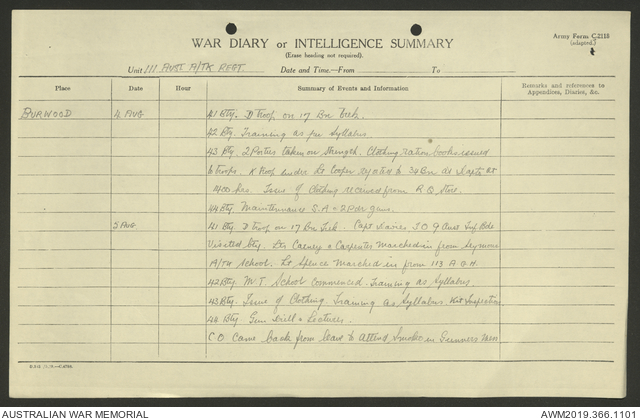 Army Form C.2118
(adapted.)
WAR DIARY or INTELLIGENCE SUMMARY
(Erase heading not required).
Unit 111 AUST A/TK REGT. Date and Time.—From To
Place Date Hour Summary of Events and Information Remarks and reference to Appendices, Diaries, &c.
BURWOOD 4 AUG 41 Bty. D troop on 17 Bn Trek.
42 Bty. Training as per Syllabus.
43 Bty. 2 taken on Strength. Clothing ration books issued
to troops. K troop under Lt Cooper to 34 Bn at
2400 hrs. Issue of Clothing received from R Q Store.
44 Bty Maintenance S.A & 2 Pdr guns.
5 AUG. 41 Bty. D troop on 17 Bn Trek. Capt Davies I O 9 Aust Inf Bde
Visited bty. Lts Carney & Carpenter Marched in from Seymour
A/TK School. Lt Spence Marched in from 113 A.G.H.
42 Bty. M.T. School commenced. Training as Syllabus.
43 Bty. Issue of Clothing. Training as Syllabus. Kit Inspection
44 Bty Gun Drill & Lectures.
C.O Came back from leave to Attend Smoko in Gunners Mess
AUSTRALIAN WAR MEMORIAL
AWM2019.366.1101